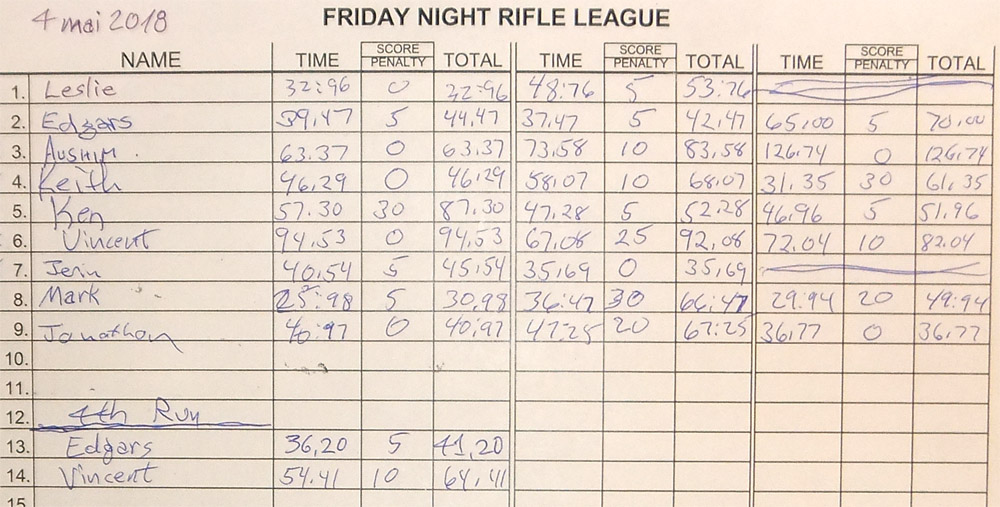 4 mai 2018
FRIDAY NIGHT RIFLE LEAGUE
NAME TIME SCORE PENALTY TOTAL TIME SCORE PENALTY TOTAL TIME SCORE PENALTY TOTAL
1. Leslie 32:96 0 32:96 48:76 5 53:76
2. Edgars 39.47 5 44.47 37.47 5 42.47 65.00 5 70.00
3. 63.37 0 63.37 73.58 10 83.58 126.74 0 126.74
4. Keith 46.29 0 46.29 58.07 10 68.07 31.35 30 61.35
5. Ken 57.30 30 87.30 47.28 5 52.28 46.96 5 51.96
6. Vincent 94.53 0 94.53 67.08 25 92.08 72.04 10 82.04
7. 40.54 5 45.54 35.69 0 35.69
8. Mark 25:98 5 30.98 36:47 30 66:47 29:94 20 49:94
9. Jonathan 40:97 0 40.97 47.25 20 67:25 36.77 0 36.77
10.
11.
12. 4th Run
13. Edgars 36.20 5 41.20
14. Vincent 54.41 10 64.41
15